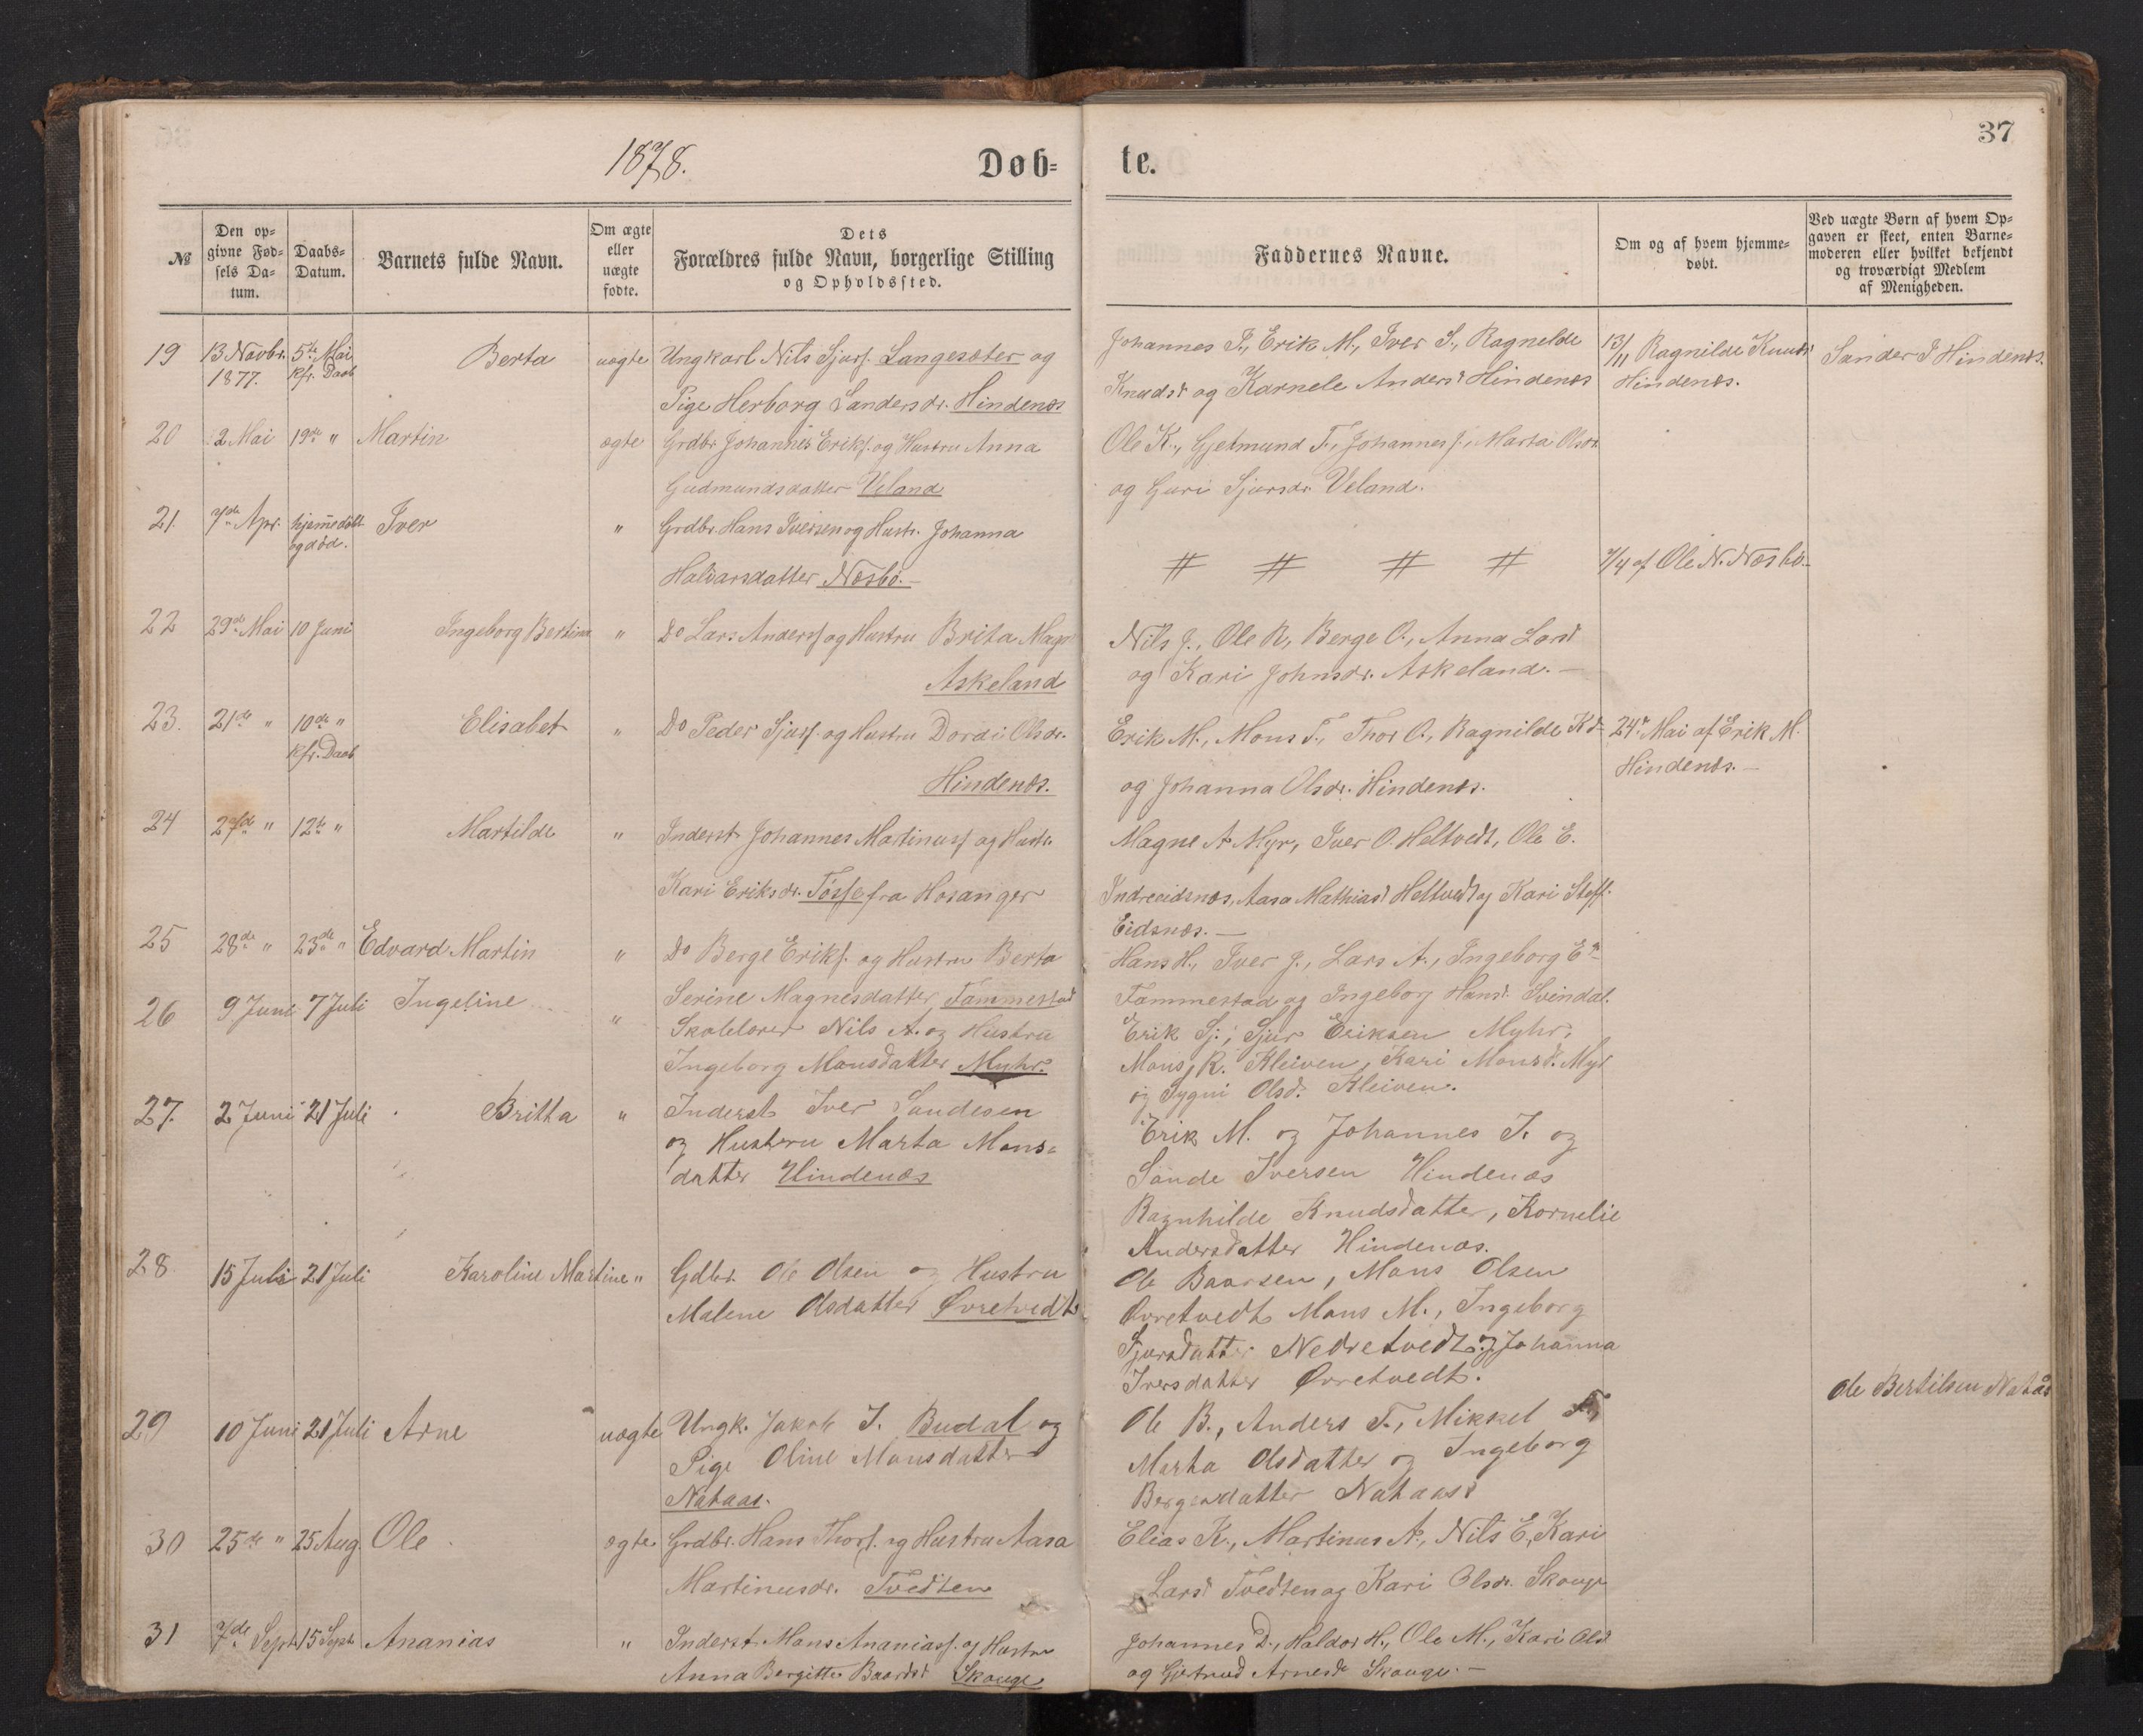 1878.
Døb-
te.
37
№
Den op-
givne Fød-
sels Da-
tum.
Daabs-
Datum.
Barnets fulde Navn.
Om ægte
eller
uægte
fødte.
Dets
Forældres fulde Navn, borgerlige Stilling
og Opholdssted.
Faddernes Navne.
Om og af hvem hjemme-
døbt.
Ved uægte Børn af hvem Op-
gaven er skeet, enten Barne-
moderen eller hvilket bekjendt
og troværdigt Medlem
af Menigheden.
19 13 Novbr. 5te Mai Berta uægte Ungkarl Nils Sjurs. Langesæter og
1877. Kfr. Daab
Pige Herborg Sandersdr. Hindenæs
Johannes J., Erik M., Iver S., Ragnelde
Knudsd og Karnele Andersd Hindenæs
13/11 Ragnilde Knuds
Hindenæs.
Sander J Hindenæs.
20 2 Mai 19de " Martin ægte Grdbr. Johannes Eriks. og Hustru Anna
Gudmundsdatter Veland
Ole K., Gjetmund T., Johannes J., Marta Olsdr
og Guri Sjursdr. Veland.
21. 7de Apr. hjemmedøbt Iver " Grdbr. Hans Iversen og Hustr. Johanna
og død.
Halvarsdatter Næsbø.-
# # # #
7/4 af Ole N. Næsbø-
22 29de Mai 10 Juni Ingeborg Bertina " Do Lars Anderss og Hustru Brita Magn
Askeland
Nils J., Ole R, Berge O., Anna Larsd
og Kari Johnsdr. Askeland.-
23. 21de " 10de " Elisabet " Do Peder Sjurs. og Hustru Dordi Olsdr.
Kfr. Daab
Hindenæs.
Erik M., Mons T., Thor O., Ragnilde Kd-
og Johanna Olsdr. Hindenæs.
24de Mai af Erik M.
Hindenæs.-
24 27de " 12te " Martilde " Inderst Johannes Martinuss og Hustr.
Kari Eriksdr. Tösse fra Hosanger
Magne A Myr, Iver O. Heltvedt, Ole E.
Indreeidsnæs, Aasa Mathiasd Heltvedt og Kari Steff.
Eidsnæs.-
25 28de " 23de " Edvard Martin " Do Berge Eriks. og Hustru Berta
Serine Magnesdatter Fammestad
Hans H., Iver J., Lars A., Ingeborg Edr
Fammestad og Ingeborg Hansd. Svindal.
26 9 Juni 7 Juli Ingeline " Skolelærer Nils A. og Hustru
Ingeborg Monsdatter Myhr.
Erik Sj., Sjur Eriksen Myhr,
Mons R. Kleiven, Kari Monsd. Myr
og Sygni Olsd. Kleiven.
27. 2 Juni 21 Juli Britta " Inderst Iver Sandesen
og Husteru Marta Mons-
datter Hindenæs
Erik M. og Johannes J. og
Sande Iversen Hindenæs
Ragnhilde Knudsdatter, Kornelie
Andersdatter Hindenæs.
28. 15 Juli 21 Juli Karoline Martine " Gdbr. Ole Olsen og Hustru
Malene Olsdatter Øvretvedt
Ole Baarsen, Mons Olsen
Øvretvedt Mons M., Ingeborg
Sjursdatter Nedretvedt og Johanna
Iversdatter Øvretvedt.
29 10 Juni 21 Juli Arne uægte Ungk. Jakob J. Budal og
Pige Oline Monsdatter
Nataas.
Ole B., Anders T., Mikkel
Marta Olsdatter og Ingeborg
Bergesdatter Nataas
Ole Bertilsen Natås
30 25de " 25 Aug Ole ægte Grdbr. Hans Thors. og Hustru Aasa
Martinusdr. Tvedten
Elias K., Martinus A., Nils E, Kari
Larsd Tvedten og Kari Olsdr. Skouge
31 7de Sept 15 Sept Ananias " Inderst Mons Ananiass. og Hustru
Anna Bergitte Baardsd Skouge
Johannes D., Haldor H., Ole M., Kari Olsd
og Gjertrud Arnesdr Skouge.-